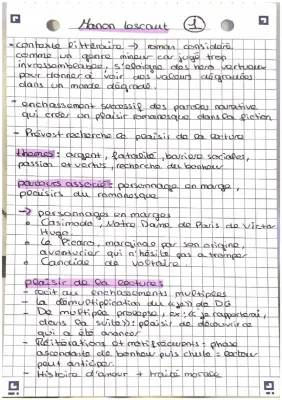 Manon lescaut 1
- contexte littéraire → roman considéré
comme un genre mineur car jugé trop
invraissemblable, s'éloigne des héros vertueux
pour donner à voir des valeurs dégradées
dans un monde dégradé.
- enchassement successif des paroles narrative
qui créer un plaisir romanesque dans la fiction
- Prévost recherche le plaisir de la lecture
thèmes : argent, fatalité, barrière sociales,
passion et vertus, recherche du bonheur
parcours associé : personnage en marge,
plaisirs du romanesque
→ personnages en marges
- Casimodo, Notre Dame de Paris de Victor
Hugo.
- Le Picaro, marginale par son origine,
aventurier qui n'hésite pas a tromper
- Candide de Voltaire
plaisir de la lectures
- récit au enchassements multiples
- la démultiplication du "je" de DG
- De multiple prolepse, ex : "je rapporterai,
dans la suite" : plaisir de découvrir ce
qui a été annoncé
- Réitérations et motif récurents : phase
ascendante de bonheur puis chute = lecteur
peut anticiper
- Histoire d'amour + traité morale